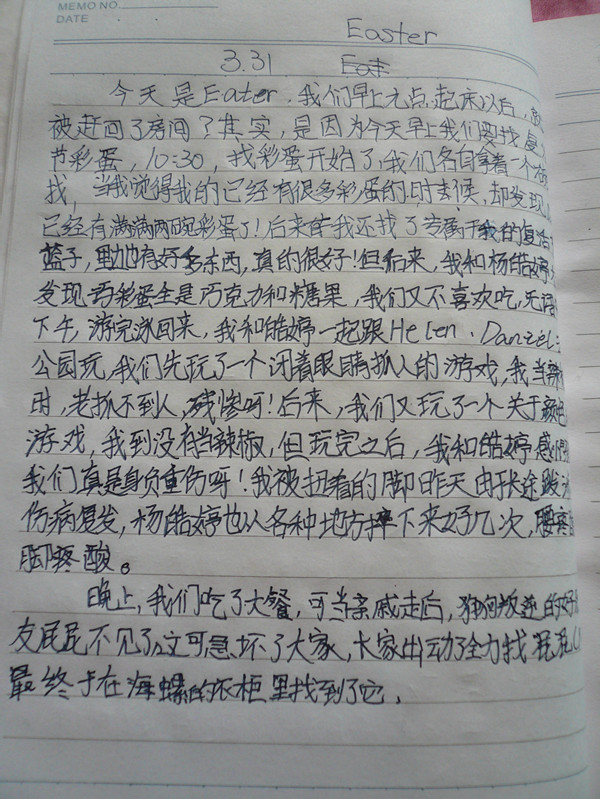 MEMO NO.
DATE
Easter
3.31 East
今天是Eater，我们早上九点起床以后，就
被赶回了房间？其实，是因为今天早上我们要找复
节彩蛋，10:30，找彩蛋开始了，我们各自拿着一个
找，当我觉得我的已经有很多彩蛋的时候，却发现
已经有满满两碗彩蛋了！后来我还找了专属于我的复活
篮子，里面有好多东西，真的很好！但后来，我和杨皓婷
发现彩蛋全是巧克力和糖果，我们又不喜欢吃，无语
下午，游完泳回来，我和皓婷一起跟Helen、Daniel
公园玩，我们先玩了一个闭着眼睛抓人的游戏，我当辣
时，老抓不到人，残惨呀！后来，我们又玩了一个关于颜色
游戏，我到没有当辣椒，但玩完之后，我和皓婷感
我们真是身负重伤呀！我被扭着的脚昨天由于长途跋
伤病复发，杨皓婷也从各种地方摔下来好几次，腰疼
脚疼酸。
晚上，我们吃了大餐，可当亲戚走后，狗狗叛逆的好
友屁屁不见了，这可急坏了大家，大家出动了全力找屁屁
最终于在海螺的衣柜里找到了它。